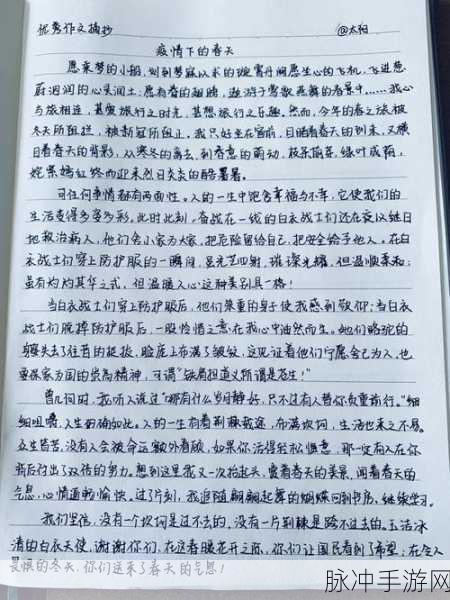 优秀作文摘抄 @太阳
疫情下的春天
愿乘梦的小船，划到梦寐以求的斑霄丹阙愿生心的飞机，飞进葱
蔚洇润的心头润土；愿有春的翅膀，遨游于莺歌燕舞的春景中……我心
与旅相连，甚爱旅行之时光，甚想旅行之乐趣，然而，今年的春之旅被
冬天所阻拦，被新冠所阻止，我只好坐在窗前，目睹着春天的到来，又横
目看春天的背影，从寒冬的离去，到春意的萌动，枝条萌芽，绿叶成荫，
姹紫嫣红，终而迎来烈日炎炎的酷暑暑。
可任何事情都有两面性。人的一生中饱含幸福与不幸，它使我们的
生活变得多姿多彩。此时此刻，奋战在一线的白衣战士们还在夜以继日
地救治病人，他们舍小家为大家，把危险留给自己，把安全给予他人。在白
衣战士们穿上防护服的一瞬间，虽光芒四射，璀璨光耀，但温顺柔和；
虽有灼灼其华之式，但温暖人心，这种美别具一格！
当白衣战士们穿上防护服后，他们笨重的身子使我感到敬仰；当白衣
战士们脱掉防护服后，一股怜惜之意在我心中油然而生。她们略驼的
脊梁失去了往昔的挺拔，脸庞上布满了皱纹，这见证着他们宁愿舍己为人，也
要保家为国的崇高精神，可谓“铁肩担道义所谓是苍生！”
曾几何时，我听人说过“哪有什么岁月静好，只不过有人替你负重前行。”细
细咀嚼，人生的确如此。人的一生有着荆棘载途，布满坎坷，生活也来之不易。
众生皆苦，没有人会被命运额外眷顾，如果你活得轻松惬意，那一定有人在你
背后付出了双倍的努力。想到这里我又一次抬起头，赏着春天的美景，闻着春天的
气息，心情逾乾愉快，过了片刻，我追随翩翩起舞的蝴蝶回到书房，继续学习。
我们坚信，没有一个坎坷是过不去的，没有一片荆棘是跨不过去的。玉洁冰
清的白衣天使，谢谢你们，在这春暖花开之际，你们让国民看到了希望；在令人
畏惧的冬天，你们送来了春天的气息！
脉冲手游网